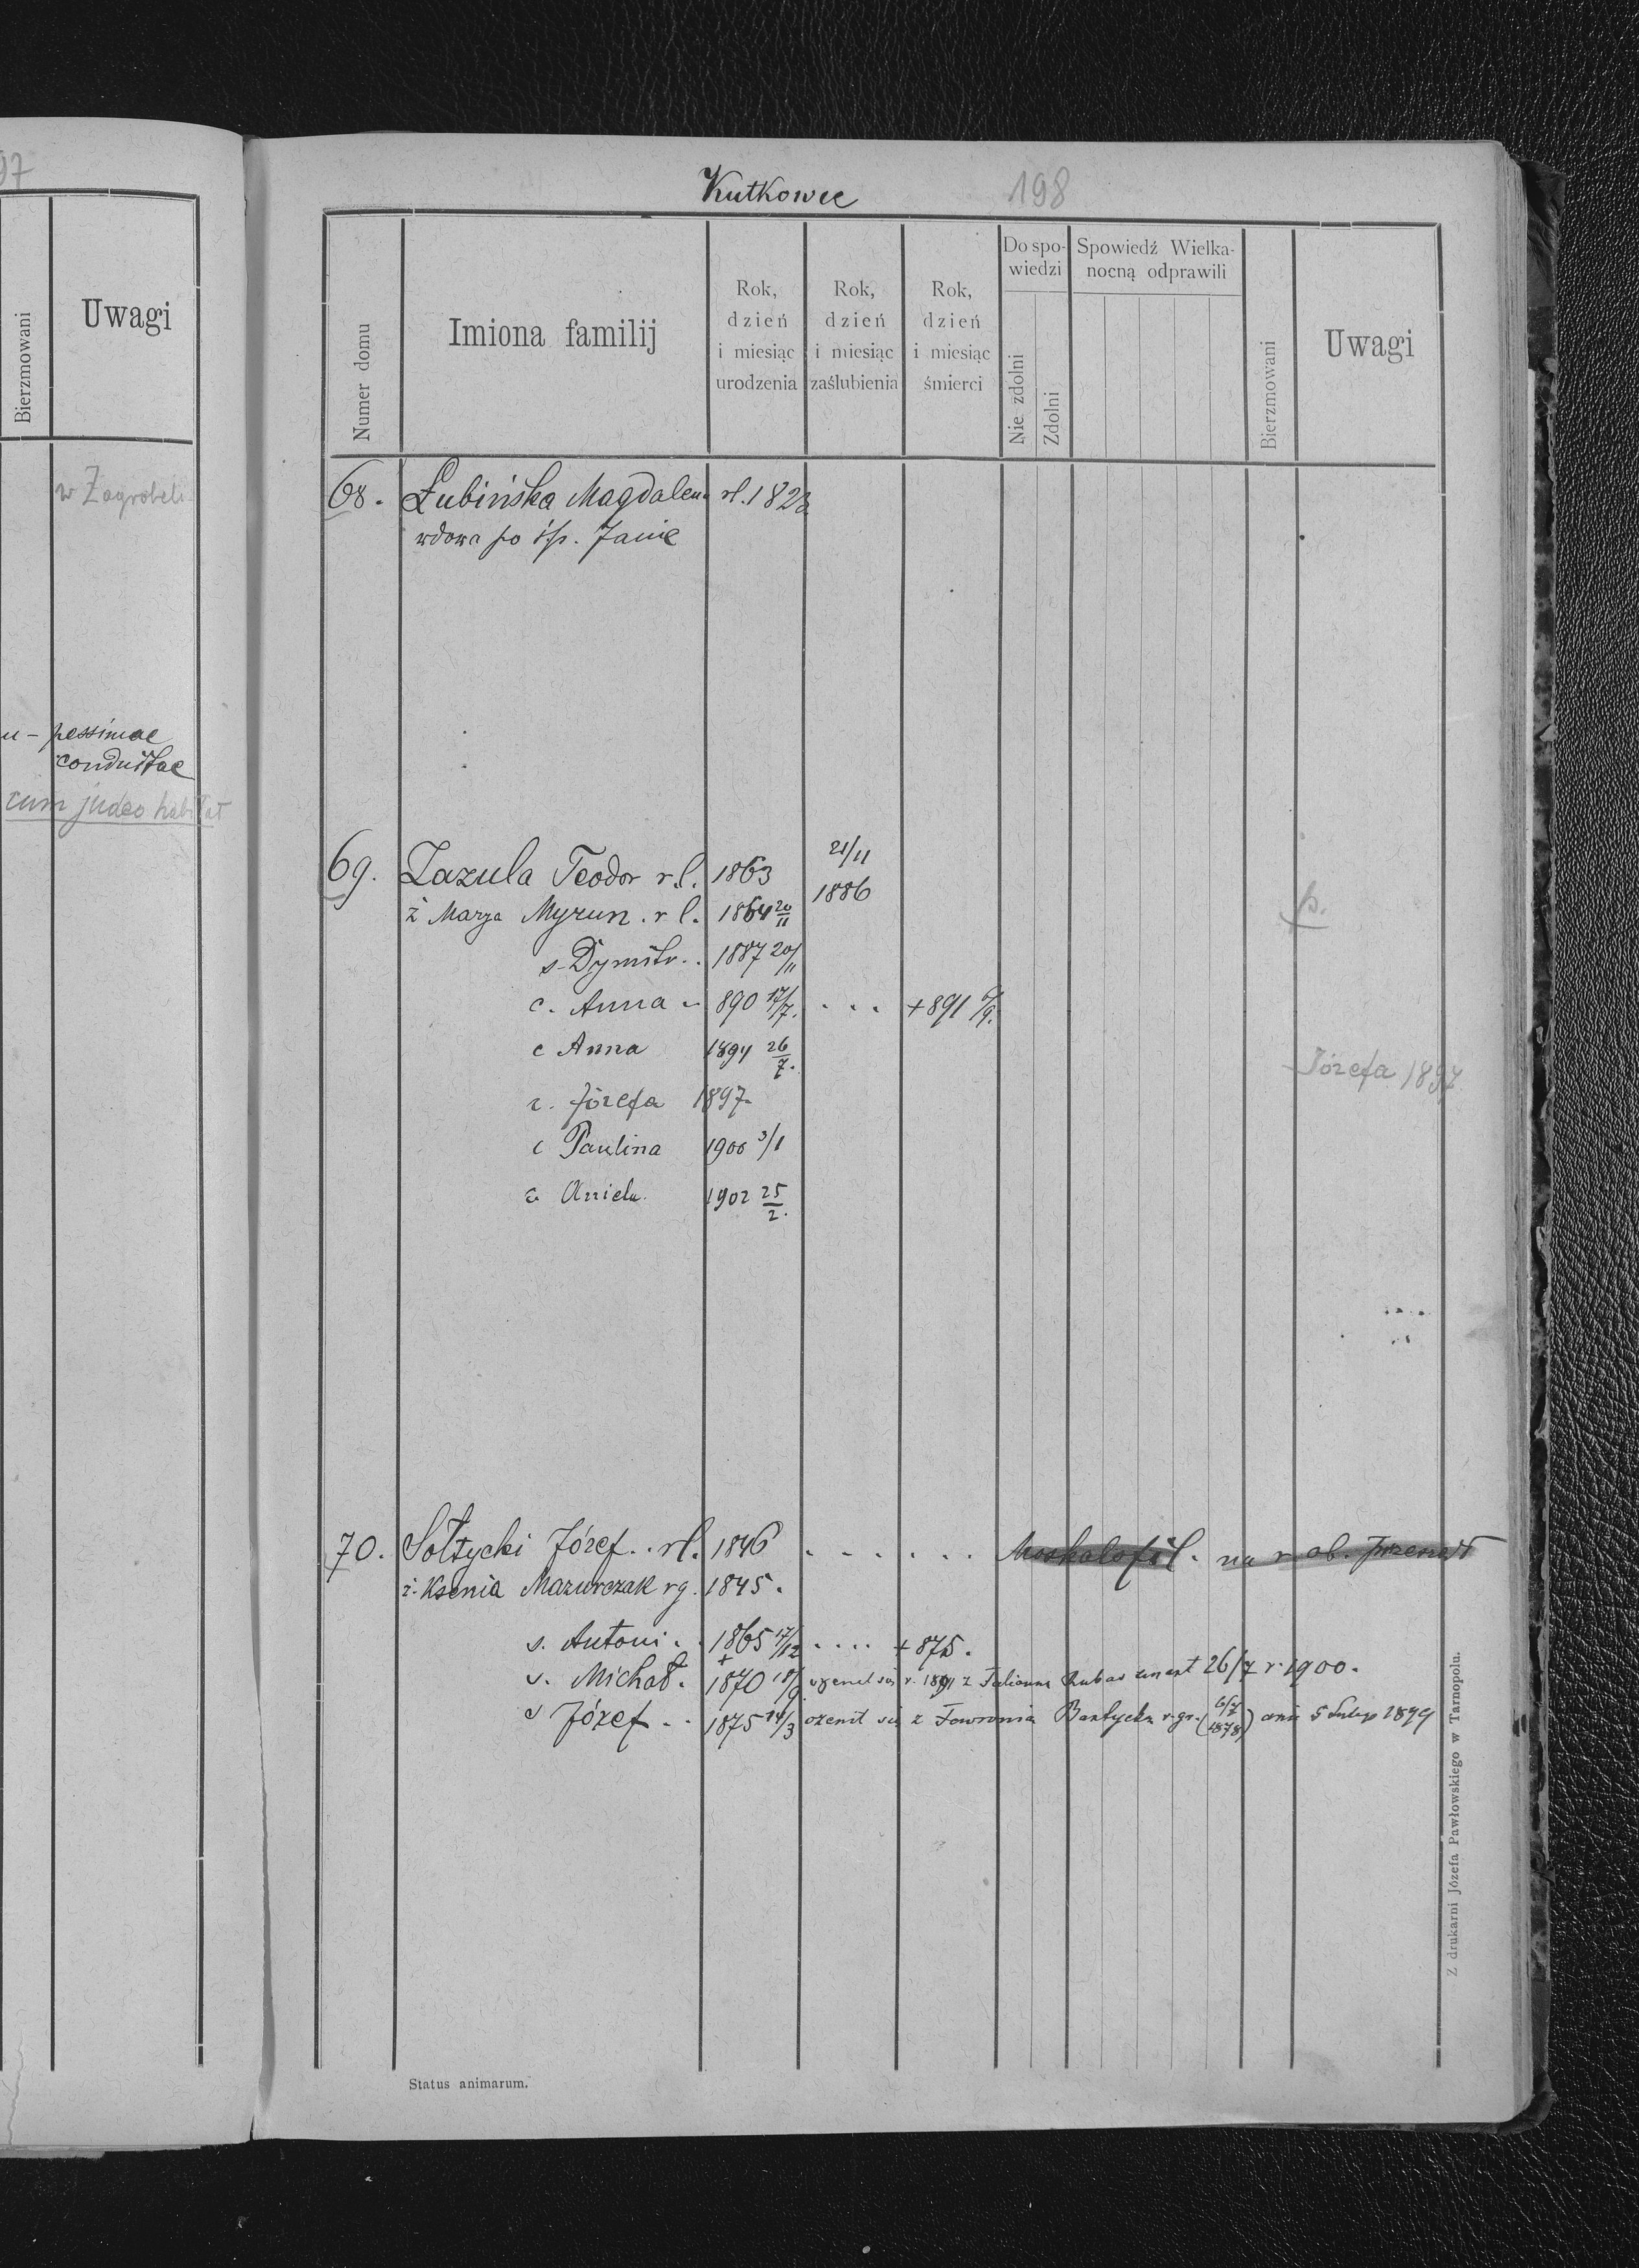 97
Bierzmowani
Uwagi
w Zagrobeli
pessimae
conduitae
cum judeo habitat
Kutkowce
198
Numer domu
Imiona familij
Rok,
dzień
i miesiąc
urodzenia
Rok,
dzień
i miesiąc
zaślubienia
Rok,
dzień
i miesiąc
śmierci
Do spo-
wiedzi
Nie zdolni
Zdolni
Spowiedź Wielka-
nocną odprawili
Bierzmowani
Uwagi
68. Łubińska Magdalena rl. 1823
wdowa po śp. Janie
69. Zazula Teodor r.l. 1863 21/11
1886
ż Marya Myzun. r l. 1864 20/11
p.
s. Dymitr.. 1887 20/11
c. Anna - 890 17/7. ... +891 /9.
c Anna 1894 26/7.
Józefa 1897
c. Józefa 1897
c Paulina 1900 3/1
c. Aniela. 1902 25/2.
70. Sołtycki Józef.. rl. 1846 ...... Moskalofil. na r. ob. przeszedł
ż. Ksenia Mazurczak rg. 1845.
s. Antoni.. 1865 17/12 .... +875.
s. Michał. 1870 18/9 ożenił się r. 1891 z Julianna zmarł 26/7 r. 1900.
s Józef.. 1875 14/3 ożenił się z Fewronia r.gr. (6/7 1878) dnia 5 Lutego 1899
Z drukarni Józefa Pawłowskiego w Tarnopolu.
Status animarum.